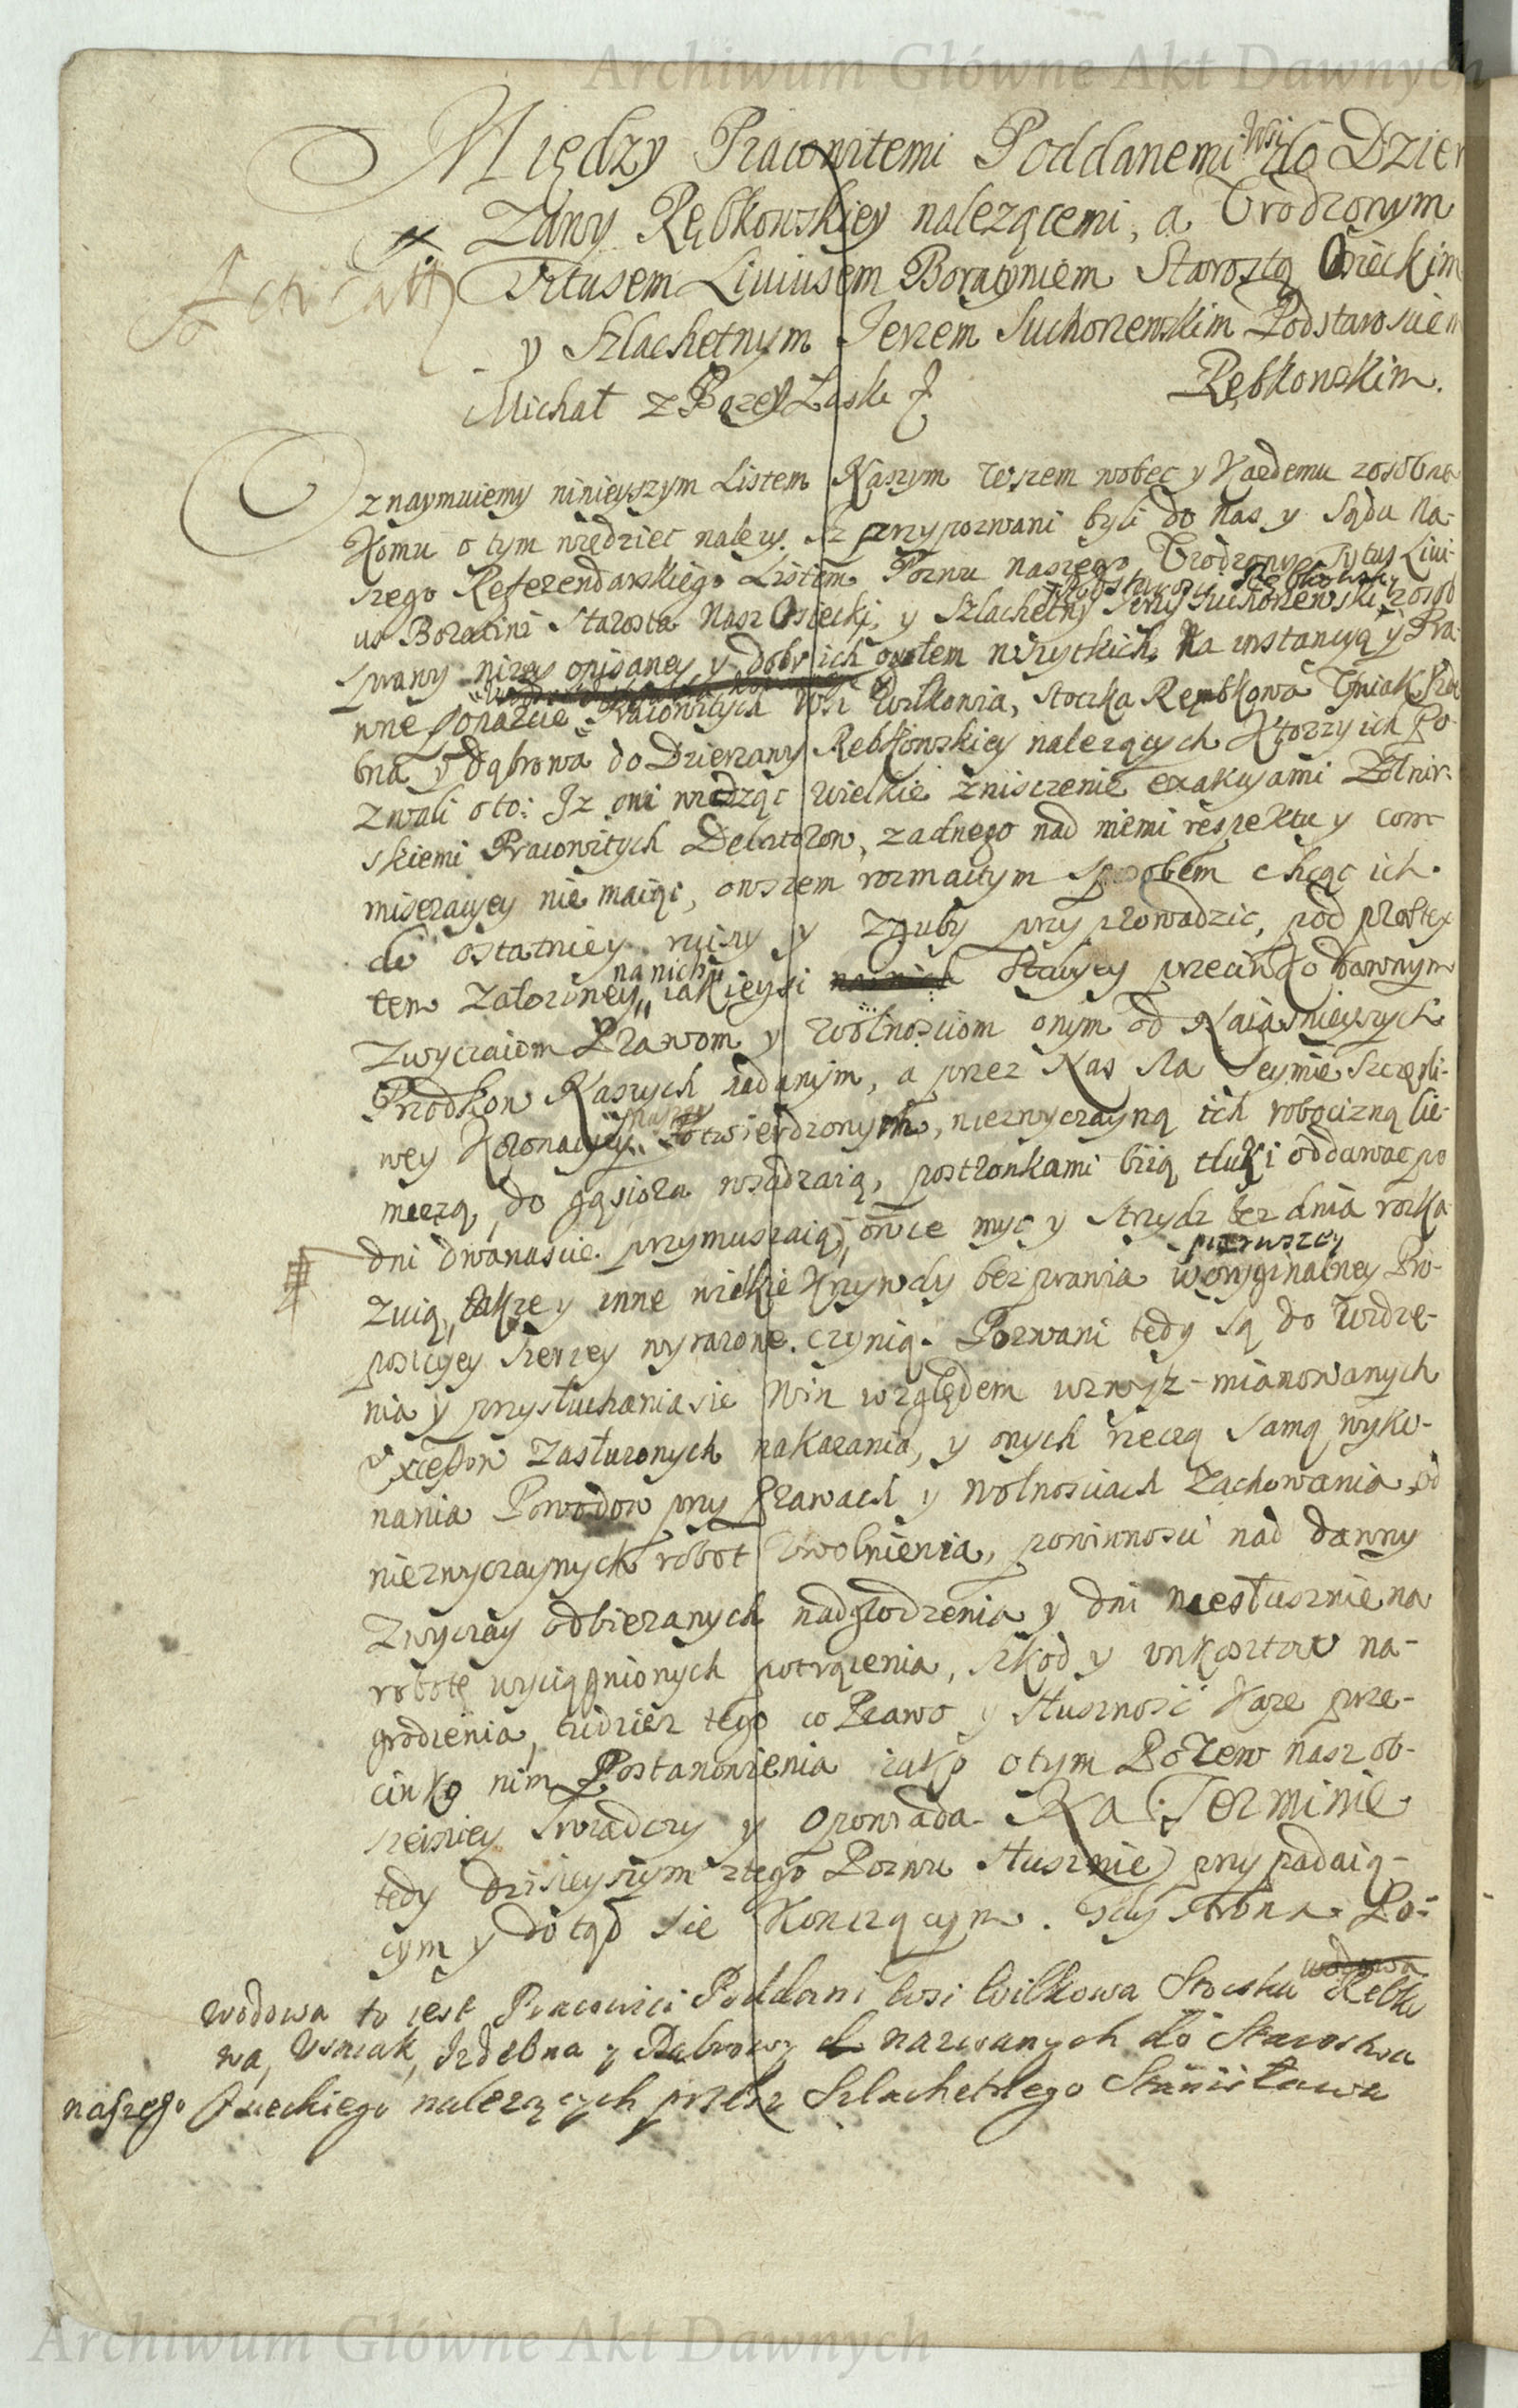 Archiwum Główne Akt Dawnych
Między Pracowitemi Poddanemi Wsi do Dzier
żawy Rębkowskiey nalezącemi, a Urodzonym
Titusem Liuiusem Boratyniem Starostą Osieckim
y Szlachetnym Jerzem Suchorzewskim Podstarościem
Rębkowskim.
Michał z Bozey Łaski
Oznaymuiemy ninieyszym Listem Naszym Wszem wobec y Kazdemu zosobna
Komu o tym wiedziec nalezy. Iz przypozwani byli do nas y Sądu Na-
szego Referendarskiego Listem Pozwu naszego, Urodzony Tytus Liui-
us Boratini Starosta Nasz Osiecki, y Szlachetny Jerzy Suchorzewski zosob
Podstarosci Rębkowski
sprawy nizey opisaney y dobr ich ogołem wszytkich, Na instancyą y Pra-
wne poparcie Pracowitych Wsi Wilkowia, Stoczka Rębkowa Uśniak Izde
bna y Dąbrowa do Dzierzawy Rębkowskiey nalezących Ktorzy ich Po-
zwali o to: Iz oni widząc wielkie zniszczenie exakcyami Zołnir-
skiemi Pracowitych Delatorow, zadnego nad niemi respektu y com-
miseracyey nie maiąc, owszem rozmaitym sposobem chcąc ich
do ostatniey ruiny y zguby przyprowadzic, pod praetex
tem załozoney na nich iakieysi Stacyey przeciwko dawnym
zwyczaiom Prawom y wolnosciom onym od Naiasnieyszych
Przodkow Naszych nadanym, a przez Nas Na Seymie Szczęsli-
wey Koronacyey Naszey Potwierdzonym, niezwyczayną ich robocizną cie-
miezą, do gąsiora wsadzaią, postronkami biią tłuki oddawac po
dni dwanascie przymuszaią, owce myc y strzydz bez dnia rozka
zuią, takze y inne wielkie Krzywdy bez prawia w oryginalney Pro-
pierwszey
pozycyey szerzey wyrazone. czynią. Pozwani tedy są do widze-
nia y przysłuchania sie Win względem wzwyz-mianowanych
Excessow zasłuzonych nakazania, y onych rzeczą samą wyko-
nania Powodow przy Prawach y wolnosciach zachowania, od
niezwyczaynych robot uwolnienia, powinnosci nad dawny
zwyczay odbieranych nadgrodzenia y dni niesłusznie na
robotę wyciągnionych potrącenia, szkod y unkosztow na-
grodzenia, tudziez tego co Prawo y Słusznosc Kaze prze-
ciwko nim Postanowienia iako o tym Pozew nasz ob-
szerniey swiadczy y opowiada. Na Terminie
tedy dzisieyszym z tego Pozwu słusznie przypadaią-
cym y dotąd sie Konczącym. Gdy strona Po-
wodowa to iest Pracowici Poddani wsi Wilkowa Stocsku Rębko
wa, Usniak, Izdebna y Dąbrowy nazwanych do Starostwa
naszego Osieckiego nalezących przez Szlachetnego Stanisława
Archiwum Główne Akt Dawnych